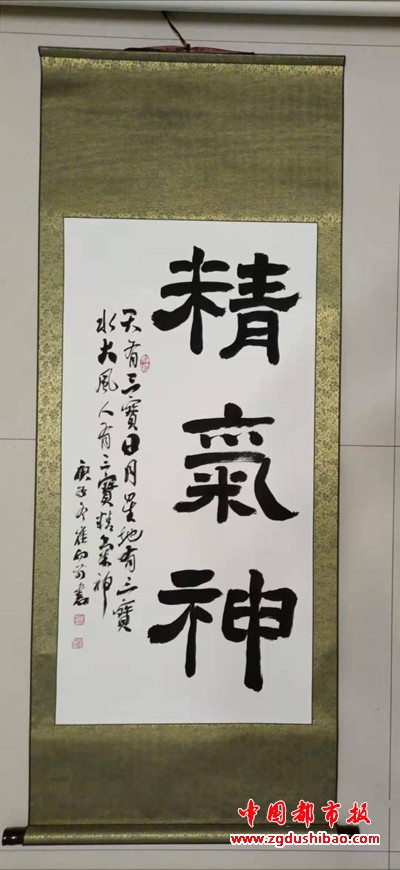 精氣神
天有三寶日月星地有三寶
水火風人有三寶精氣神
庚子冬崔向前書
中国都市报
www.zgdushibao.com